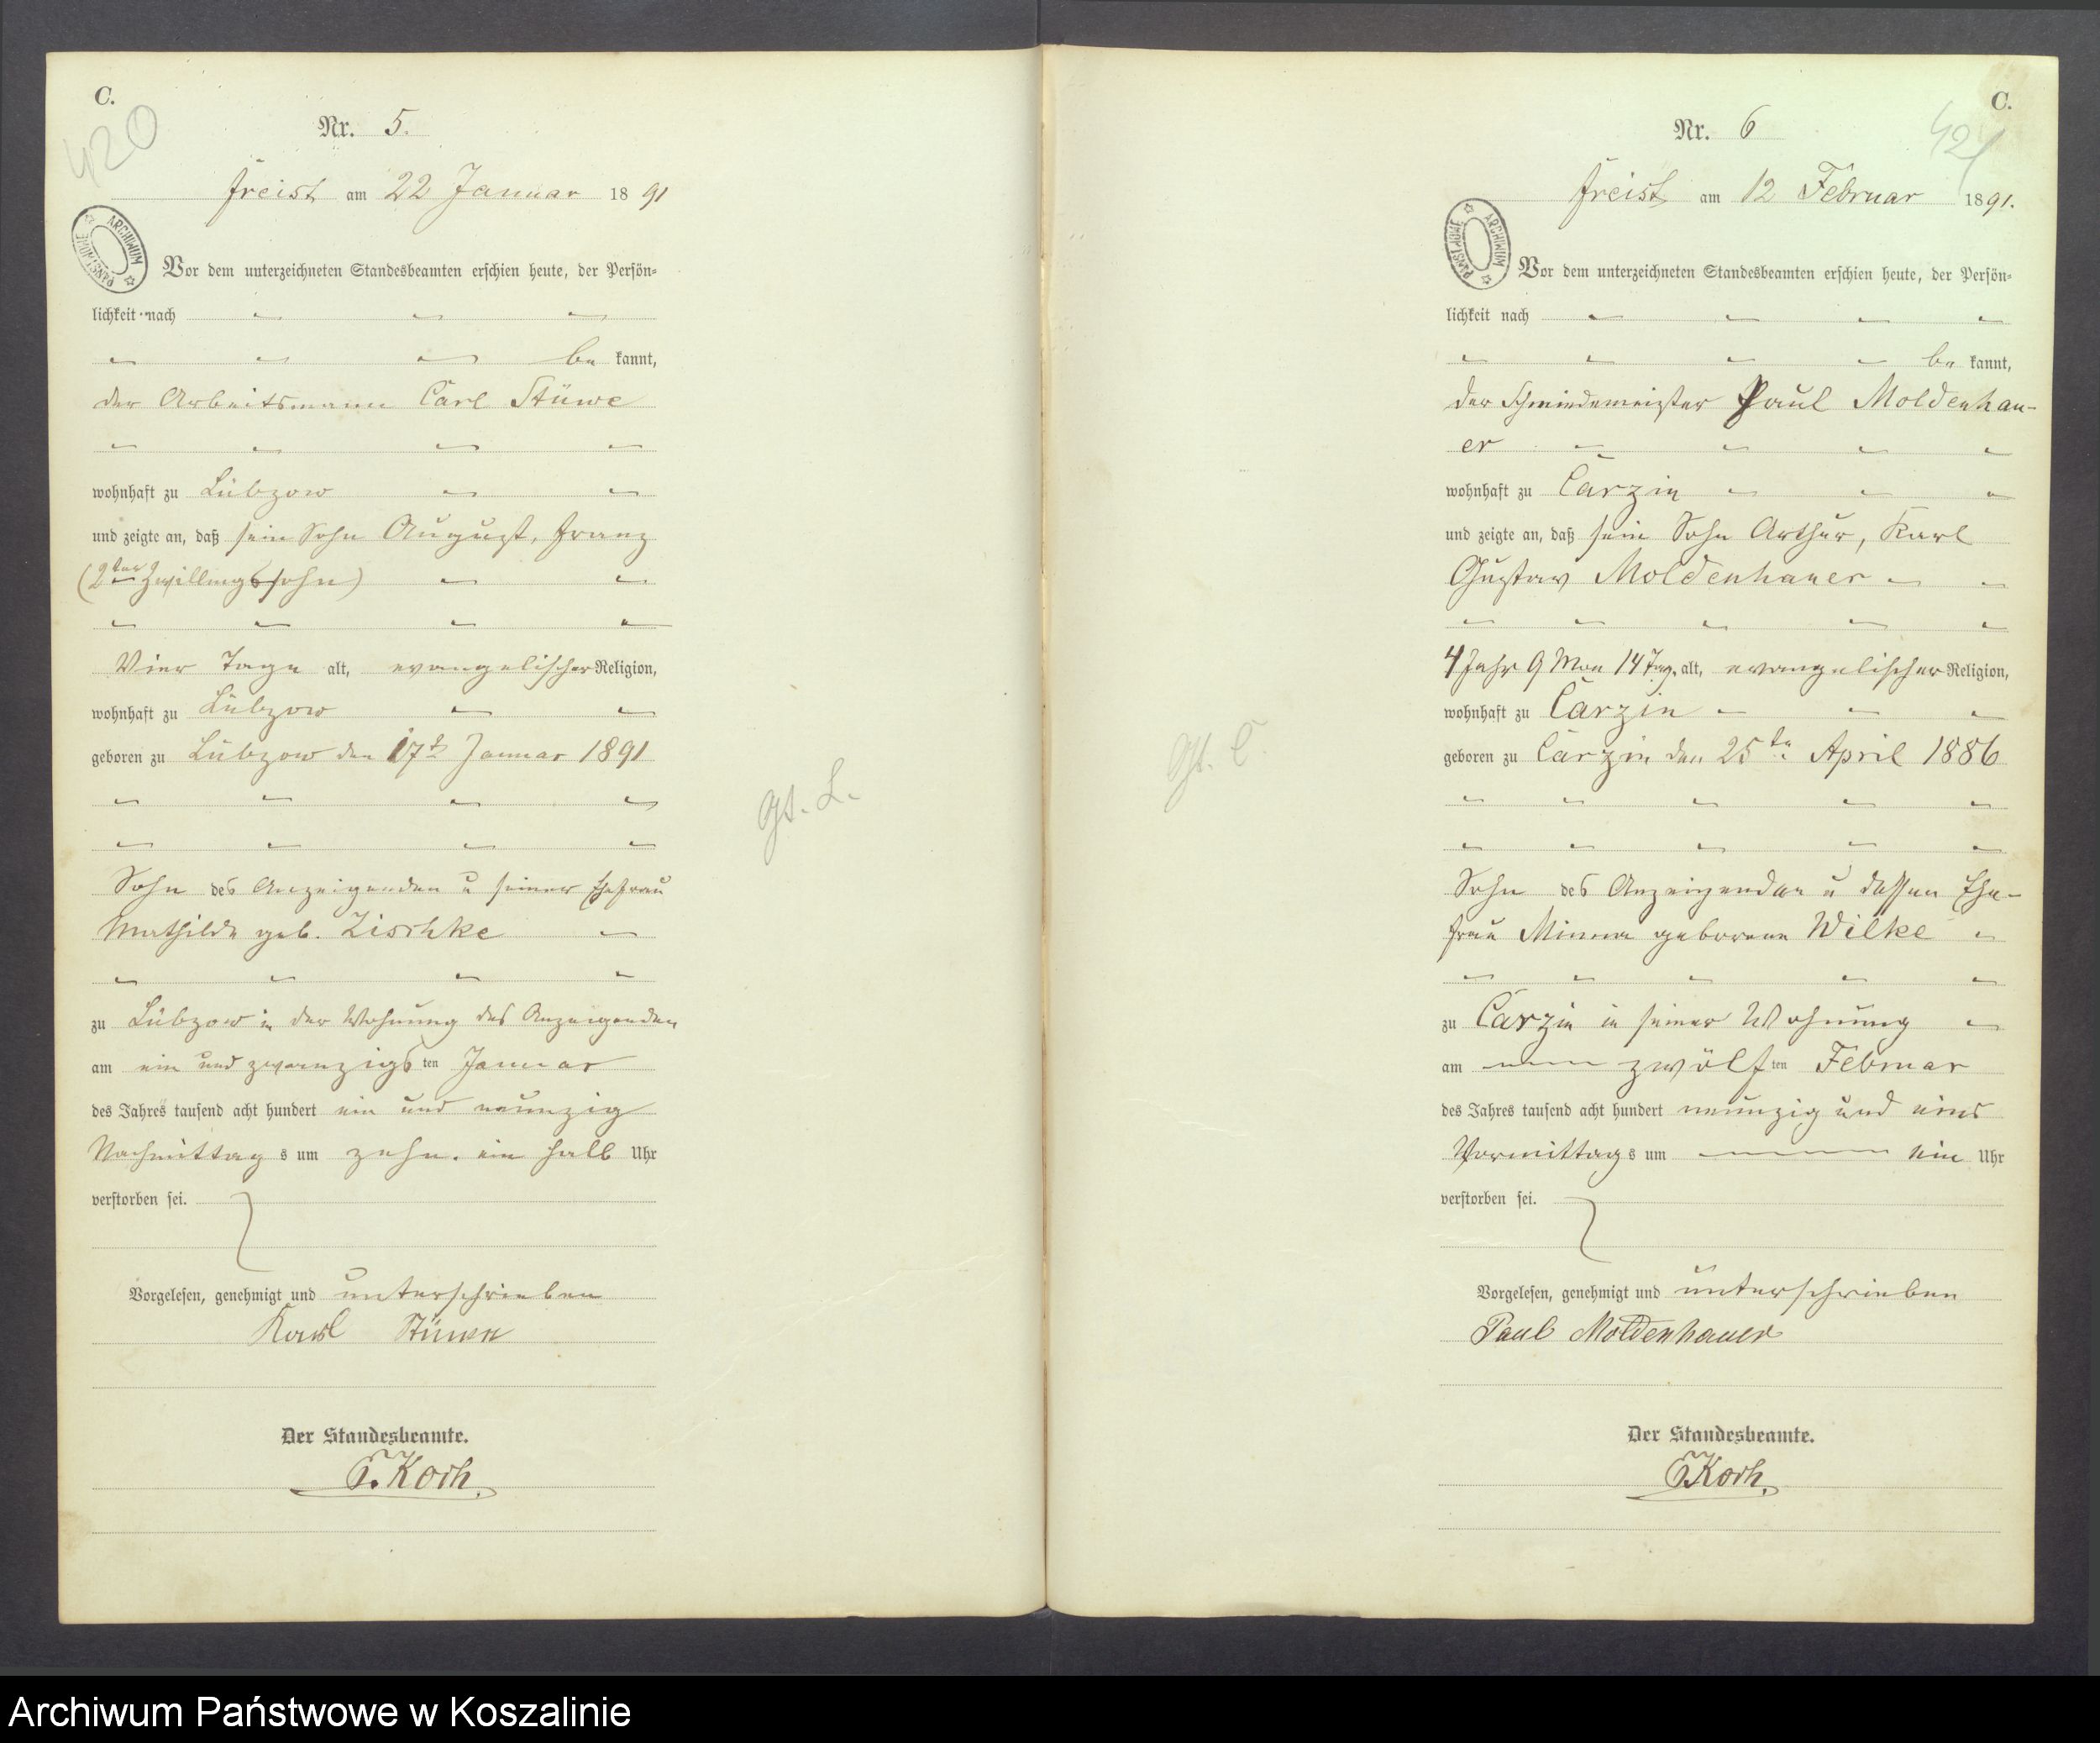 C.
420
Nr. 5.
Freist am 22 Januar 1891
ARCHIWUM PAŃSTWOWE
Vor dem unterzeichneten Standesbeamten erschien heute, der Persön-
lichkeit nach
be kannt,
der Arbeitsmann Carl Stüwe
wohnhaft zu Lübzow
und zeigte an, daß sein Sohn August, Franz
(2ter Zwillingssohn)
Vier Tage alt, evangelischer Religion,
wohnhaft zu Lübzow
geboren zu Lübzow den 17t Januar 1891
Sohn des Anzeigenden u seiner Ehefrau
Mathilde geb. Zischke
zu Lübzow in der Wohnung des Anzeigenden
am ein und zwanzigsten Januar
des Jahres tausend acht hundert ein und neunzig
Nachmittags um zehn. ein halb Uhr
verstorben sei.
Vorgelesen, genehmigt und unterschrieben
Karl Stüwe
Der Standesbeamte.
Koch.
gs. L.
C.
421
Nr. 6
Freist am 12 Februar 1891.
ARCHIWUM PAŃSTWOWE
Vor dem unterzeichneten Standesbeamten erschien heute, der Persön-
lichkeit nach
be kannt,
der Schmiedemeister Paul Moldenhau-
er
wohnhaft zu Carzin
und zeigte an, daß sein Sohn Arthur, Karl
Gustav Moldenhauer
4 Jahr 9 Mon 14 Tag. alt, evangelischer Religion,
wohnhaft zu Carzin
geboren zu Carzin den 25ten April 1886
Sohn des Anzeigenden u dessen Ehe-
frau Minna geborene Wilke
zu Carzin in seiner Wohnung
am zwölften Februar
des Jahres tausend acht hundert neunzig und eins
Vormittags um ein Uhr
verstorben sei.
Vorgelesen, genehmigt und unterschrieben
Paul Moldenhauer
Der Standesbeamte.
Koch.
gs. C.
Archiwum Państwowe w Koszalinie